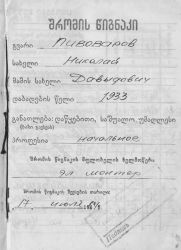 შრომის წიგნაკი
გვარი Пивоваров
სახელი Николай
მამის სახელი Давыдович
დაბადების წელი 1933
განათლება: დაწყებითი, საშუალო, უმაღლესი
პროფესია начальное
შრომის წიგნაკის მფლობელის ხელმოწერა
эл. монтер
შრომის წიგნაკის შევსების თარიღი
17 июля